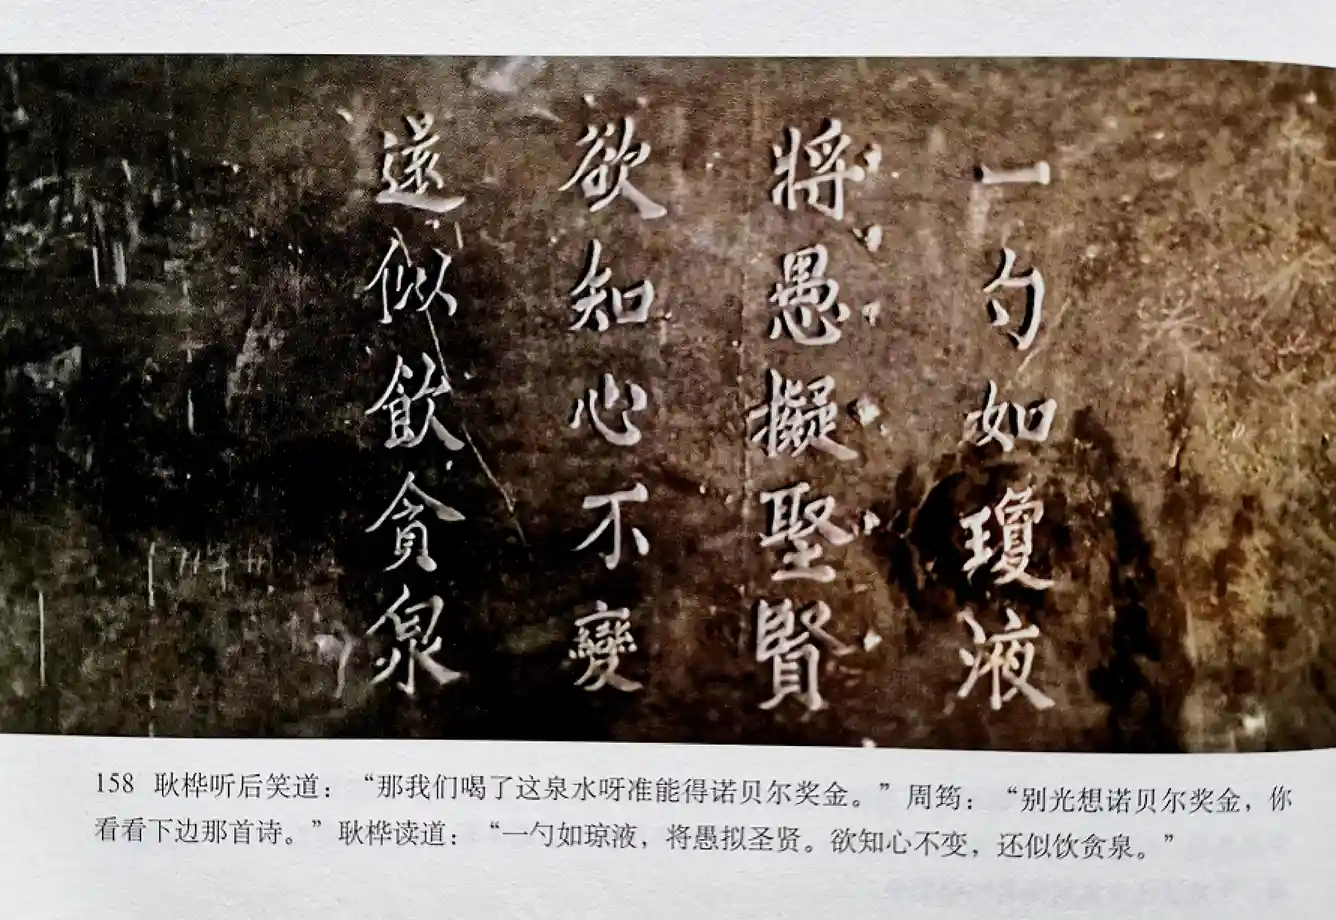 一勺如瓊液
將愚擬聖賢
欲知心不變
還似飲貪泉
158 耿桦听后笑道：“那我们喝了这泉水呀准能得诺贝尔奖金。”周筠：“别光想诺贝尔奖金，你
看看下边那首诗。”耿桦读道：“一勺如琼液，将愚拟圣贤。欲知心不变，还似饮贪泉。”